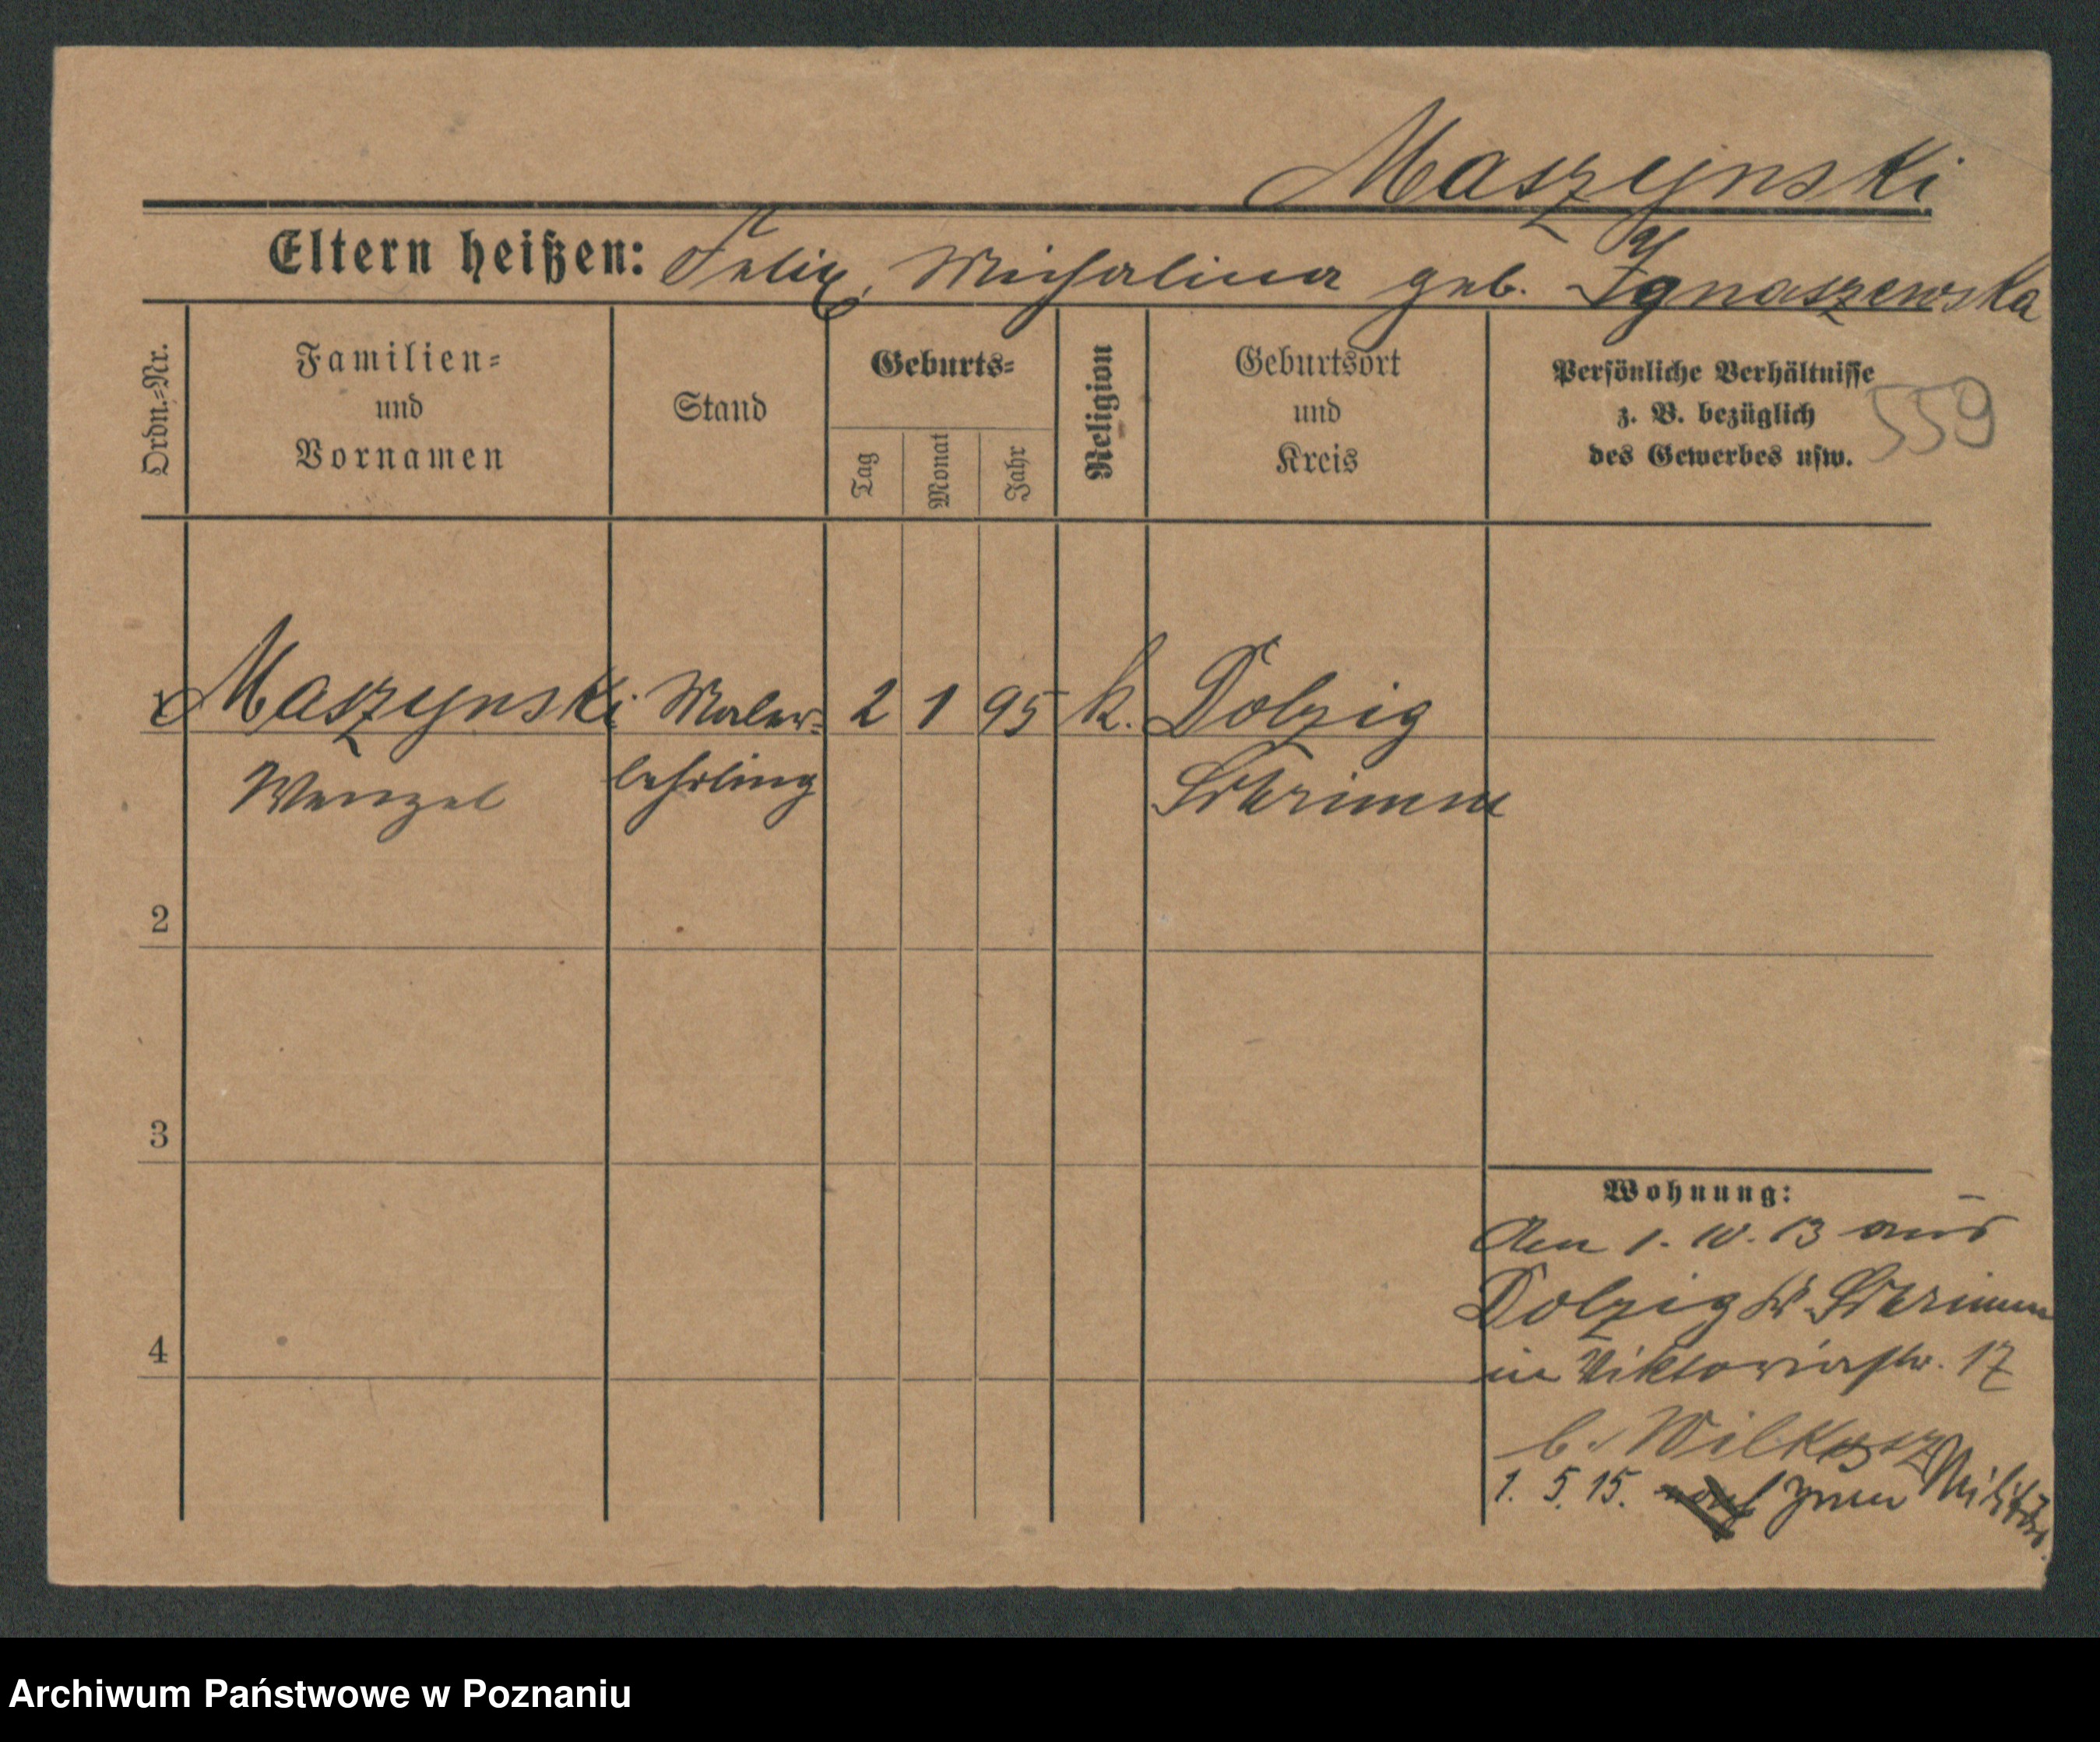 Maszynski
Eltern heißen: Felix, Michalina geb. Ignaszewska
Ordn.=Nr.
Familien=
und
Vornamen
Stand
Geburts=
Tag
Monat
Jahr
Religion
Geburtsort
und
Kreis
Persönliche Verhältnisse
z. B. bezüglich
des Gewerbes usw.
559
1 Maszynski Maler= 2 1 95 k. Dolzig
Wenzel lehrling Schrimm
2
3
4
Wohnung:
Am 1. 10. 13 aus
Dolzig Kr. Schrimm
in Viktoriastr. 17
b. Wilkosz
1. 5. 15. zum Militär.
Archiwum Państwowe w Poznaniu